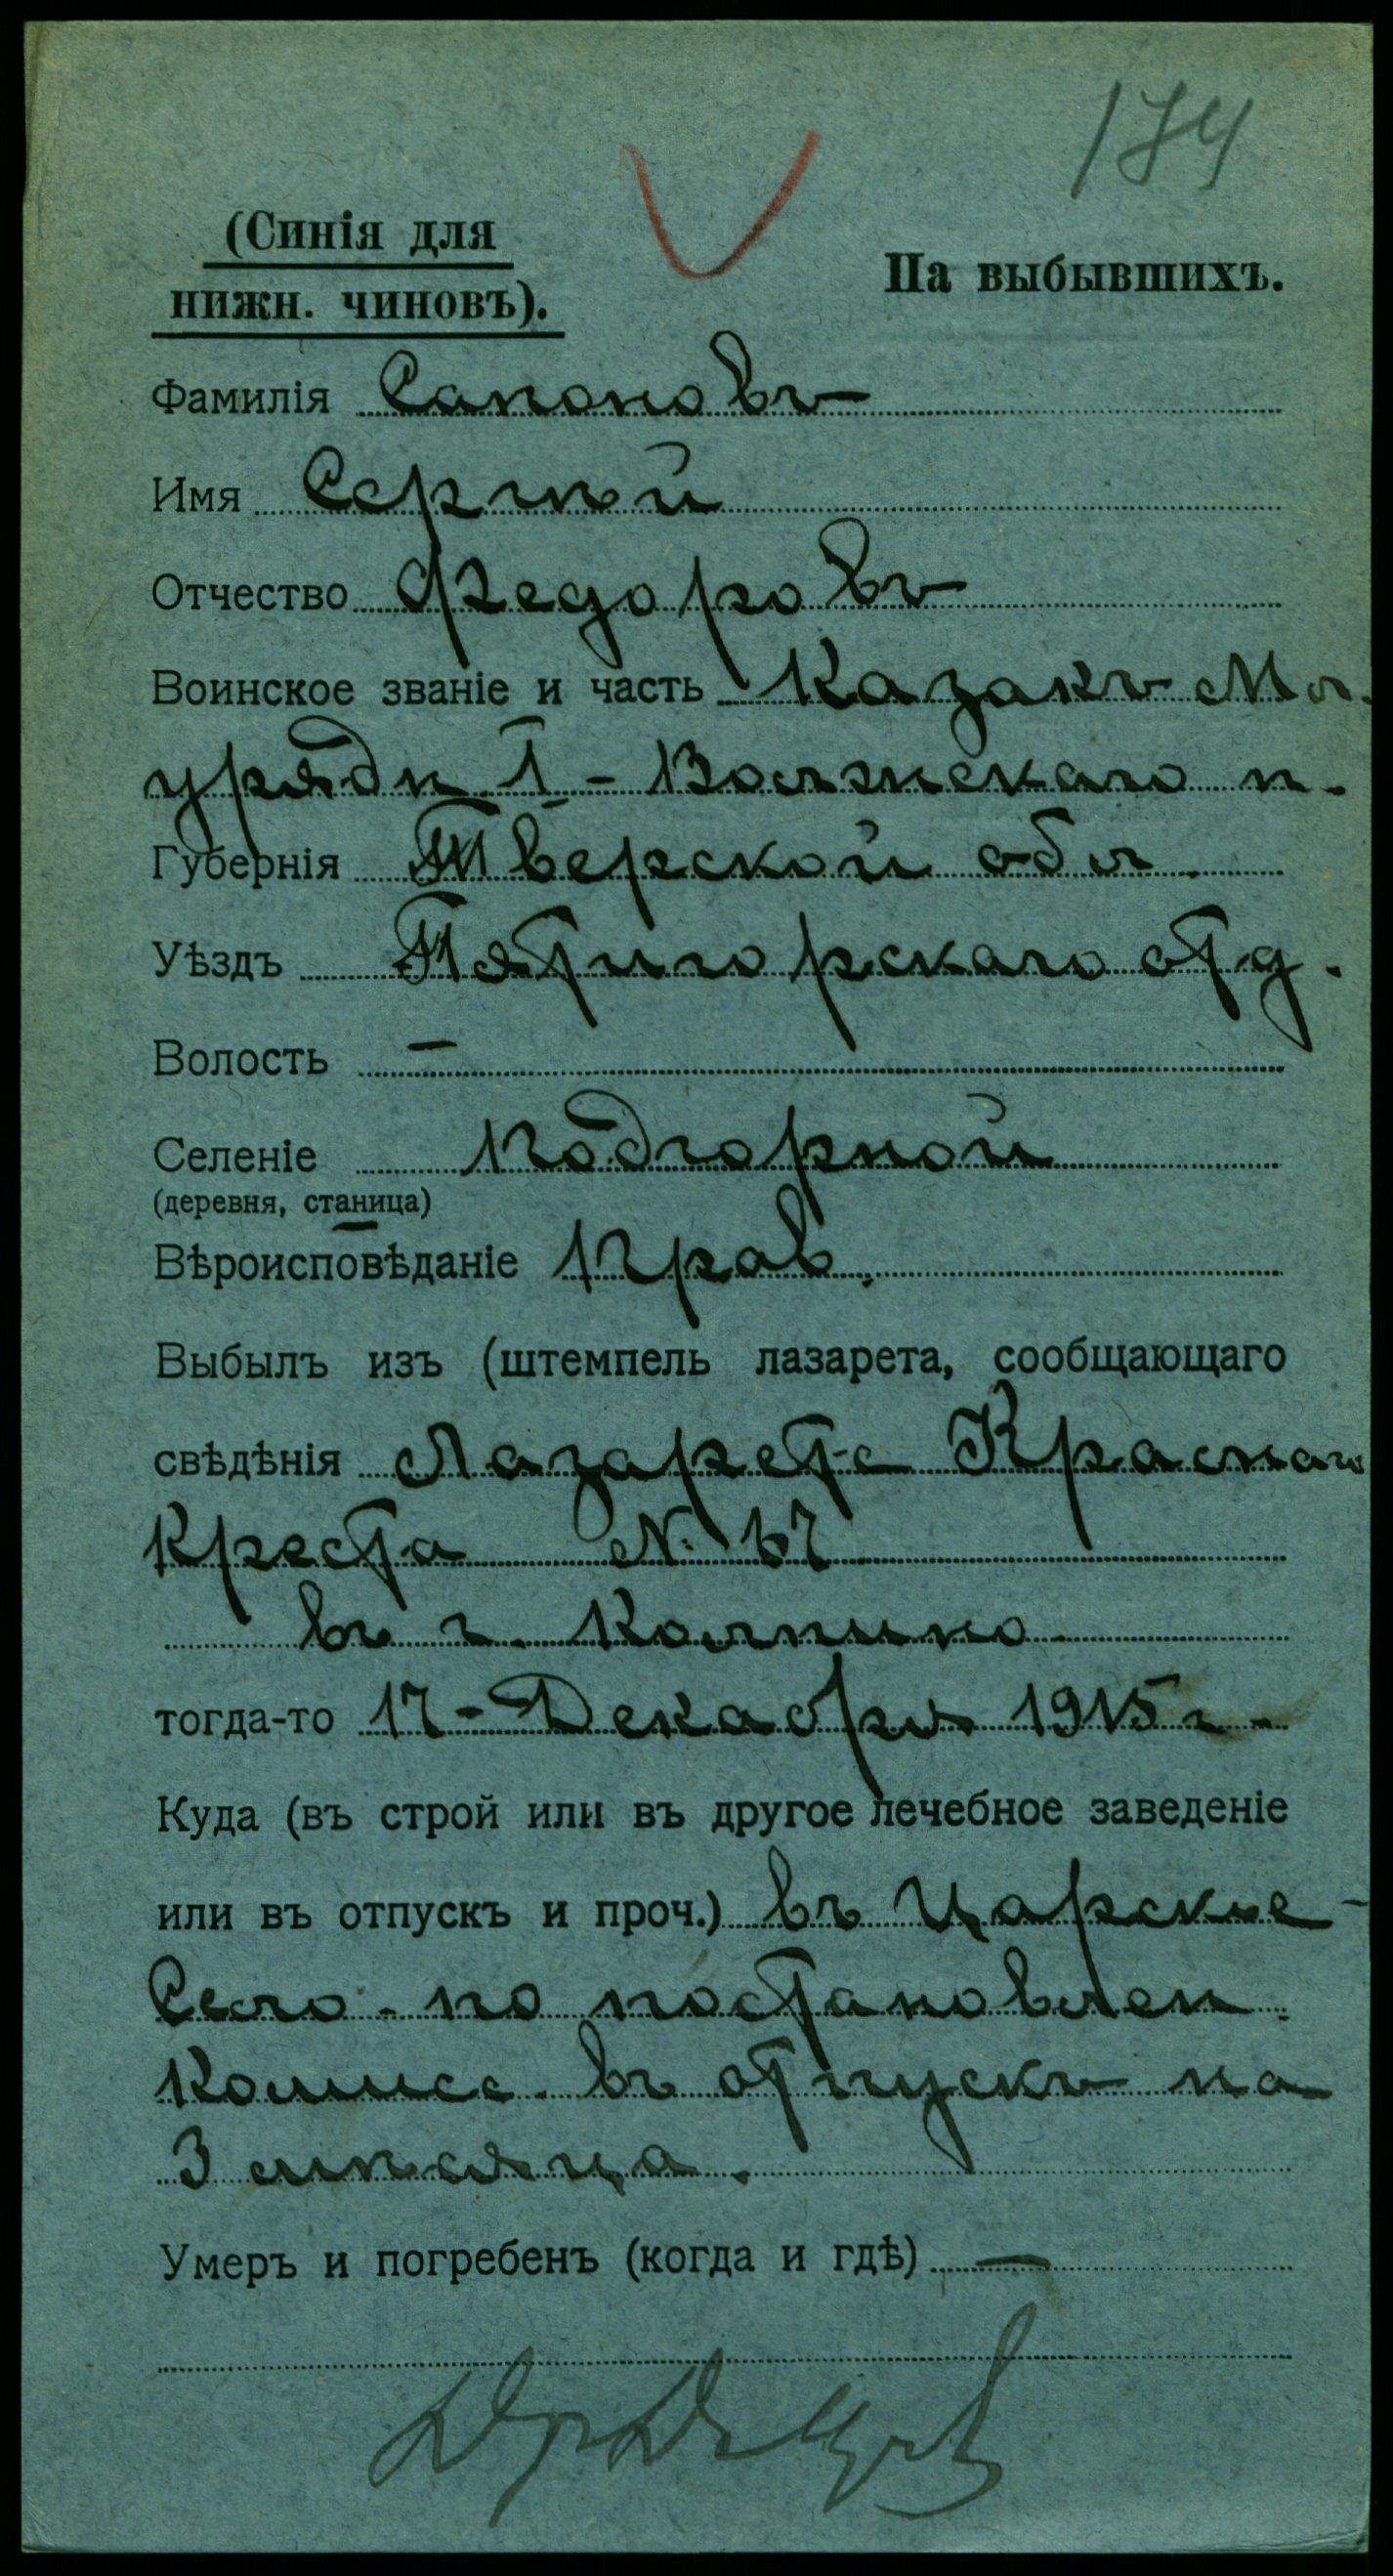 174
(Синія для
нижн. чиновъ).
На выбывшихъ.
Фамилія Сапоновъ
Имя Сергѣй
Отчество Федоровъ
Воинское званіе и часть Казакъ Мл.
урядн. 1-Волжскаго п.
Губернія Тверской обл.
Уѣздъ Пятигорскаго отд.
Волость —
Селеніе Подгорной
(деревня, станица)
Вѣроисповѣданіе Прав.
Выбылъ изъ (штемпель лазарета, сообщающаго
свѣдѣнія Лазарета Краснаго
Креста № 67
въ г. Колпино
тогда-то 17-Декабря 1915 г.
Куда (въ строй или въ другое лечебное заведеніе
или въ отпускъ и проч.) въ Царское-
Село-по постановлен.
Комисс. въ отпускъ на
3 мѣсяца.
Умеръ и погребенъ (когда и гдѣ) —